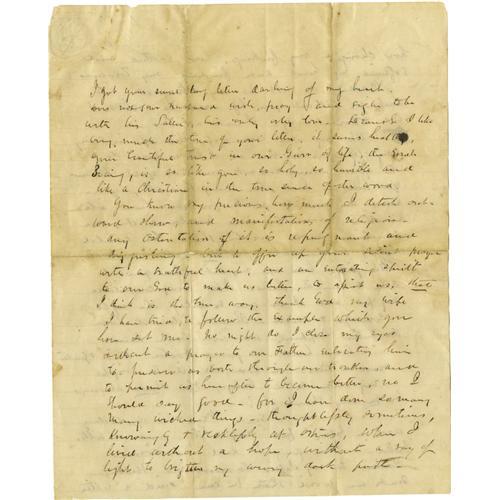 I got your sweet long letter darling of my heart.
does not your husband wish, pray and sigh to be
with his Sallie, his only only love. Because I like
very much the tone of your letter, it seems
your beautiful trust in our of life, the Great
Being, is so like you so holy, so humble and
like a Christian in the true sense of the word.
You know my precious, how much I detest out-
ward show, and manifestation of religion
any ostentation of it is repugnant and
disgusting but to offer up your silent prayer
with a truthful heart, and an spirit
to our God to make us better, to us, that
I think is the true way. Thank God my wife
I have tried to follow the example which you
have set me. No night do I close my eyes
without a prayer to our Father entreating him
to preserve us both through our troubles, and
to permit us hereafter to become better, no I
should say good - for I have done so many
many wicked things - thoughtlessly sometimes,
knowingly & recklessly at others, when I
lived without a hope, without a ray of
light to brighten my weary dark path -